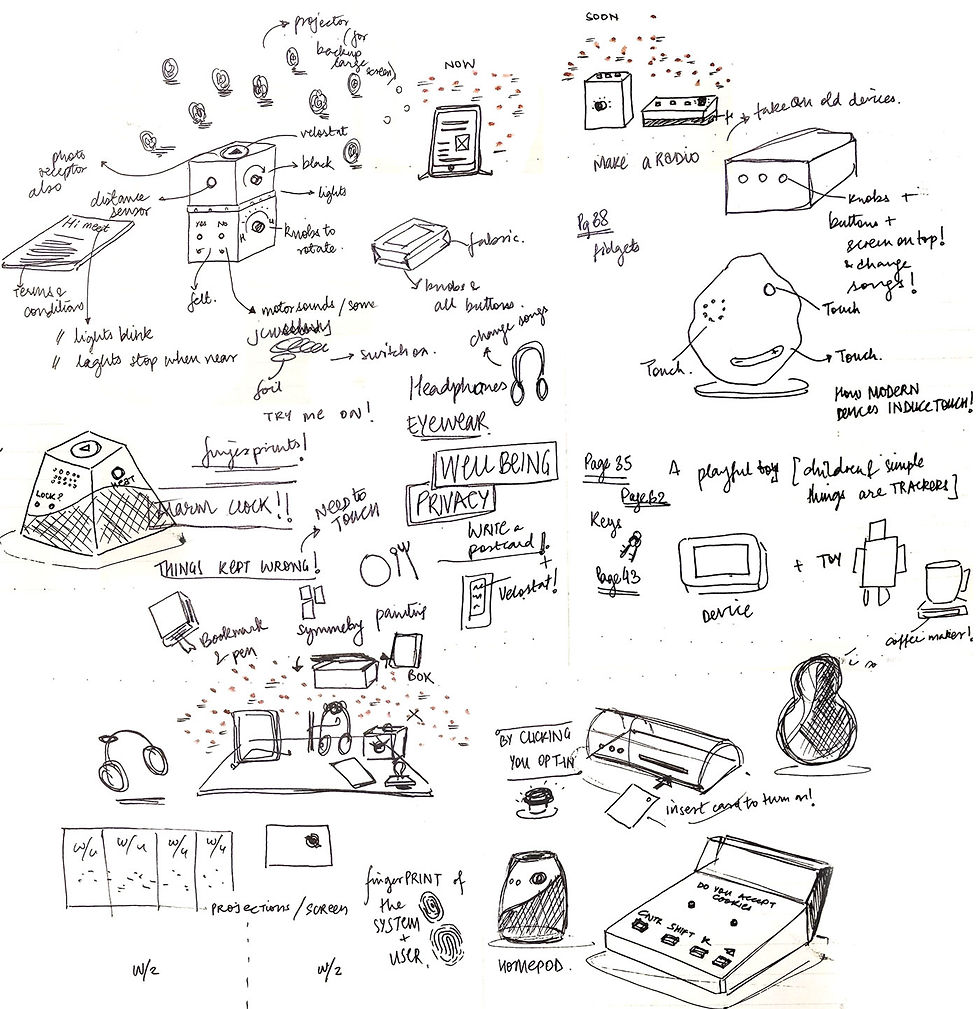 projector
(for
backup
large
screen)
NOW
SOON
velostat
black
lights
knobs to
rotate.
photo
receptor
also
distance
sensor
YES NO
Hi meet
Terms &
conditions
felt.
motorsounds / some
// lights blink
// lights stop when near
foil
switch on.
TRY ME ON!
fabric.
knobs &
all buttons.
change songs
Headphones
EYEWEAR
MAKE A RADIO
take on old devices.
Pg 38
fidgets
knobs +
buttons +
screen on top!
& change
songs!
Touch
Touch.
Touch.
HOW MODERN
DEVICES INDUCE TOUCH!
fingerprints!
LOCK?
ALARM CLOCK!!
NEED TO
TOUCH
THINGS KEPT WRONG!
WELLBEING
PRIVACY
WRITE a
postcard!
+
Velostat!
Bookmark
& pen
symmetry
BOX
Page 35
A playful toy [children & simple
things are TRACKERS]
Page 62
Keys
Page 43
DEVICE
+ TOY
coffee maker!
"BY CLICKING
YOU OPT-IN"
insert card to turn on!
w/4 w/4 w/4 w/4
PROJECTIONS / SCREEN
w/2
w/2
fingerPRINT of
the
SYSTEM
+
USER.
HOMEPOD.
DO YOU ACCEPT
COOKIES
CNTR SHIFT K